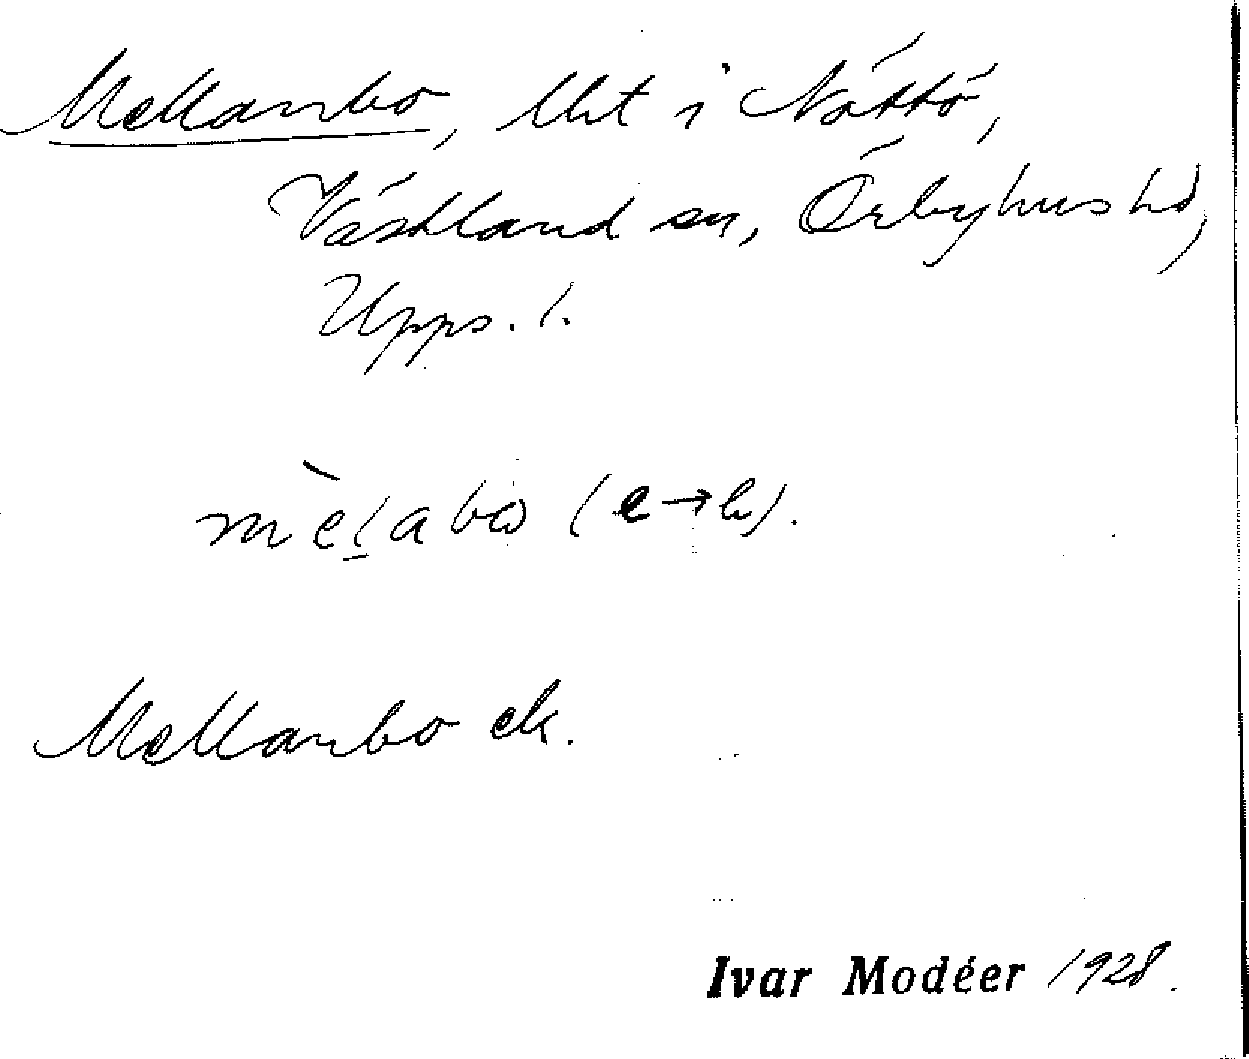 Mellanbo, lht i Nöttö,
Västland sn, Örbyhus hd,
Upps. l.
mèl̲abω (e→ä).
Mellanbo ek.
Ivar Modéer 1928.